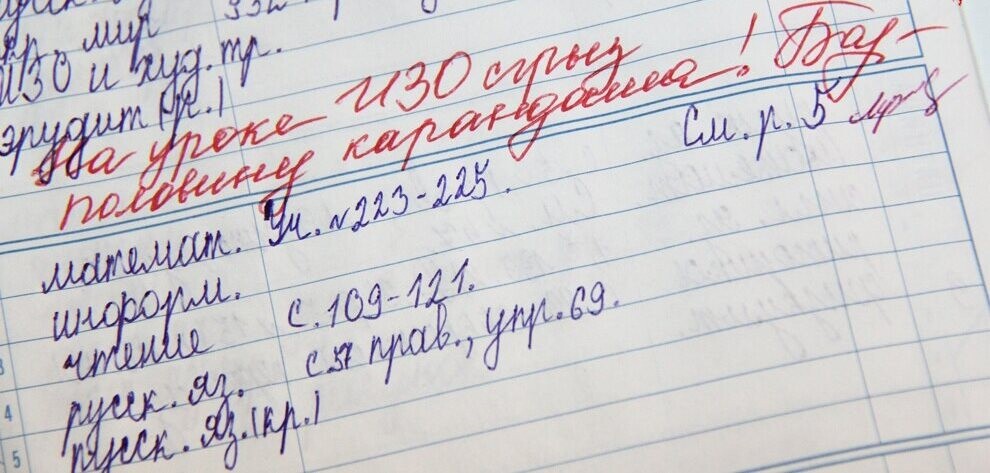 кр. мир
ИЗО и худ. тр.
эрудит (гр.)
На уроке ИЗО сгрыз
половину карандаша! Бар-
См. р. 5
математ. Уч. №223-225.
информ.
чтение с. 109-121.
русск. яз. с 57 прав., упр. 69.
русск. яз. (кр.)
3
4
5